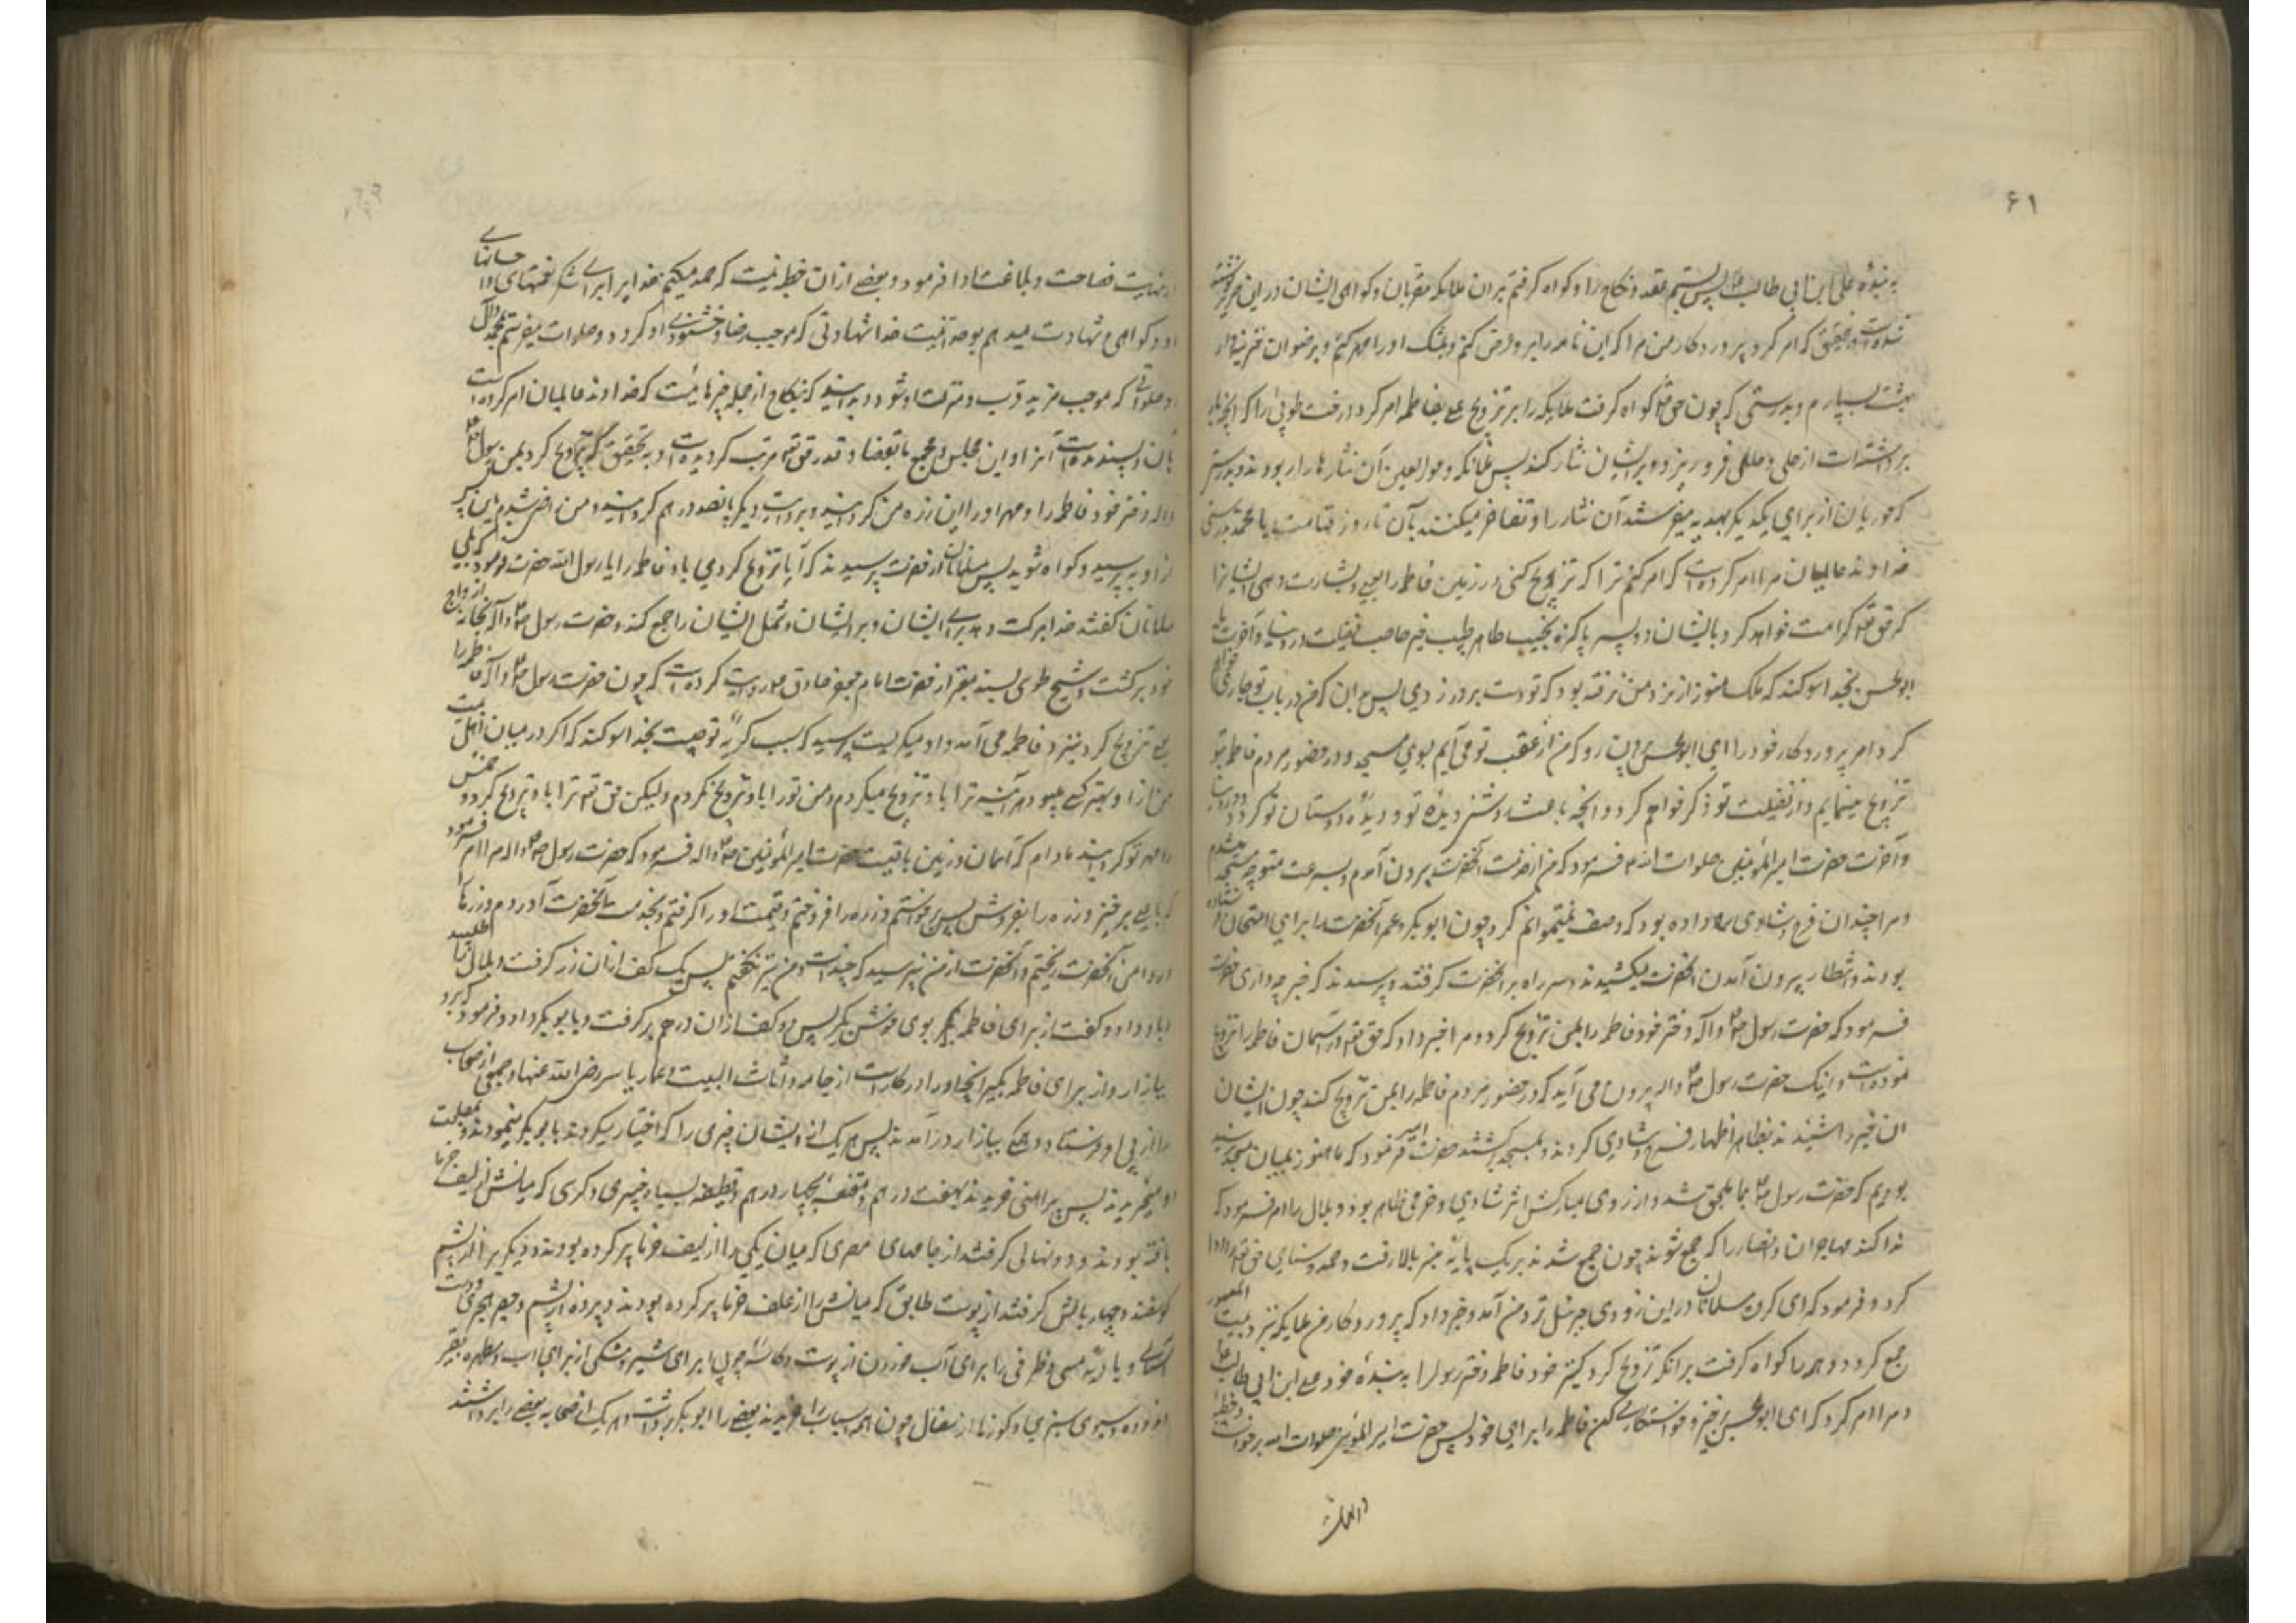 ۶۱
به بنده علی ابن ابی طالب پس بستم عقد نکاح را و گواه گرفتم بران ملایکه مقربان و گواهی ایشان درین حریر نوشته
شده است و بتحقیق که امر کرد پروردگار من مرا که این نامه را بر تو عرض کنم و بمشک او را مهر کنم و برضوان خزینه دار
بهشت بسپارم و بدرستی که چون حق تعالی گواه گرفت ملایکه را بر تزویج علی بفاطمه امر کرد درخت طوبی را که آنچه بار
برداشته است از حلی و حلل فرو ریزد و بر ایشان نثار کند پس ملائکه و حورالعین آن نثارها را ربودند و بدرستی
که حوریان از برای یکدیگر بهدیه میفرستند آن نثار را و تفاخر میکنند بآن تا روز قیامت یا محمد بدرستی
خداوند عالمیان مرا امر کرده است که امر کنم ترا که تزویج کنی در زمین فاطمه را بعلی و بشارت دهی ایشانرا
که حق تعالی کرامت خواهد کرد بایشان دو پسر پاکیزه نجیب طاهر طیب خیر صاحب فضیلت در دنیا و آخرت یا
ابو الحسن بخدا سوگند که ملک هنوز از نزد من نرفته بود که تو دست بر در زدی پس بدان که من در باب تو جاری می
کردم امر پروردگار خود را ای ابو الحسن پس رو که من از عقب تو می آیم بسوی مسجد و در حضور مردم فاطمه بتو
تزویج مینمایم و از فضیلت تو ذکر خواهم کرد آنچه باعث روشنی دیده تو و دیده دوستان تو گردد در دنیا
و آخرت حضرت امیر المؤمنین صلوات الله فرمود که من از خدمت آنحضرت بیرون آمدم و بسرعت متوجه مسجد شدم
و مرا چندان فرح و شادی رو داده بود که وصف نمیتوانم کرد چون ابوبکر و عمر آنحضرت را برای امتحان فرستاده
بودند و انتظار بیرون آمدن آنحضرت میکشیدند سر راه بر آنحضرت گرفتند و پرسیدند که خبر چه داری حضرت
فرمود که حضرت رسول ص و آله دختر خود فاطمه را بمن تزویج کرد و مرا خبر داد که حق تعالی در آسمان فاطمه را تزویج
نموده است و اینک حضرت رسول ص و آله بیرون می آید که در حضور مردم فاطمه را بمن تزویج کند چون ایشان
این خبر را شنیدند بظاهر اظهار فرح و شادی کردند و بمسجد برگشتند حضرت امیر فرمود که ما هنوز بمیان مسجد نرسیده
بودیم که حضرت رسول ص بما ملحق شد و از روی مبارکش اثر شادی و خرمی ظاهر بود و بلال را امر فرمود که
ندا کند مهاجران و انصار را که جمع شوند چون جمع شدند بر یک پایه منبر بالا رفت و حمد و ثنای حق تعالی ادا
کرد و فرمود که ای گروه مسلمانان درین زودی جبرئیل نزد من آمد و خبر داد که پروردگار من ملایکه نزد بیت المعمور
جمع کرد و همه را گواه گرفت بر آنکه تزویج کرد کنیز خود فاطمه دختر رسول را به بنده خود علی ابن ابی طالب
و مرا امر کرد که ای ابو الحسن برخیز و خواستگاری کن فاطمه را برای خود پس حضرت امیر المؤمنین صلوات الله برخواست و خطبه
در نهایت فصاحت و بلاغت ادا فرمود و بعضی از ان خطبه نیست که حمد میکنم خدا را برای شکر نعمتهای او
و گواهی و شهادت میدهم بوحدانیت خدا شهادتی که موجب رضا و خشنودی او گردد و صلوات میفرستم بمحمد و آل
او صلواتی که موجب مزید قرب و منزلت او شود و بدانید که نکاح از جمله چیزهائیست که خداوند عالمیان امر کرده است
بآن و پسندیده است آنرا و این مجلس و مجمع ما بقضا و قدر حق تعالی مرتب گردیده است و بتحقیق که تزویج کرد بمن رسول
و آله دختر خود فاطمه را و مهر او را این زره من گردانید و بروایت دیگر پانصد درهم گردانید و من راضی شدم باین پس
از او بپرسید و گواه شوید پس مسلمانان از حضرت پرسیدند که آیا تزویج کردی باو فاطمه را یا رسول الله حضرت فرمود که بلی
مسلمانان گفتند خدا برکت دهد برای ایشان و بر ایشان و شمل ایشان را جمع کند و حضرت رسول ص و آله بخانه ازواج
خود برگشت و شیخ طوسی بسند معتبر از حضرت امام جعفر صادق روایت کرده است که چون حضرت رسول ص و آله فاطمه را
بعلی تزویج کرد بنزد فاطمه می آمد و او میگریست پرسید که سبب گریه تو چیست بخدا سوگند که اگر در میان اهل بیت
من از او بهتر کسی میبود هر آینه ترا باو تزویج میکردم و من تو را باو تزویج نکردم ولیکن حق تعالی ترا باو تزویج کرد و خمس
را مهر تو گردانید مادام که آسمان و زمین باقیست حضرت امیر المؤمنین ص و اله فرمود که حضرت رسول ص و اله مرا امر فرمود
که یا علی برخیز و زره را بفروش پس برخواستم و زره را فروختم و قیمت او را گرفتم و بخدمت آنحضرت آوردم و زرها
در دامن آنحضرت ریختم و آنحضرت از من نپرسید که چند است و من نیز نگفتم پس یک کف از ان زر گرفت و بلال را طلبید
باو داد و گفت از برای فاطمه بوی خوش بگیر پس دو کف از ان دراهم برگرفت و بابوبکر داد و فرمود که برو
ببازار و از برای فاطمه بگیر آنچه او را در کار است از جامه و اثاث البیت و عمار یاسر رضی الله عنهما و جمعی از صحابه
را از پی او فرستاد و همه ببازار در آمدند پس هر یک از ایشان چیزی را که اختیار میکردند بابوبکر مینمودند و بمصلحت
او میخریدند پس پیراهنی خریدند بهفت درهم و مقنعه بچهار درهم و قطیفه سیاه خیبری و کرسی که میانش از لیف خرما
بافته بودند و دو نهالی گرفتند از جامهای مصری که میان یکی را از لیف خرما پر کرده بودند و دیگری را از پشم
گوسفند و چهار بالش گرفتند از پوست طایف که میانش را از علف خرما پر کرده بودند و پرده از پشم و حصیر هجری و دست
آسیائی و بادیه مسی و ظرفی را برای آب خوردن از پوست و کاسه چوبی از برای شیر و مشکی از برای آب و مطهره بقیر
اندوده و سبوی سبزی و کوزها از سفال چون همه اسباب را خریدند بعضی را ابوبکر برداشت و هر یک از صحابه بعضی را برداشتند